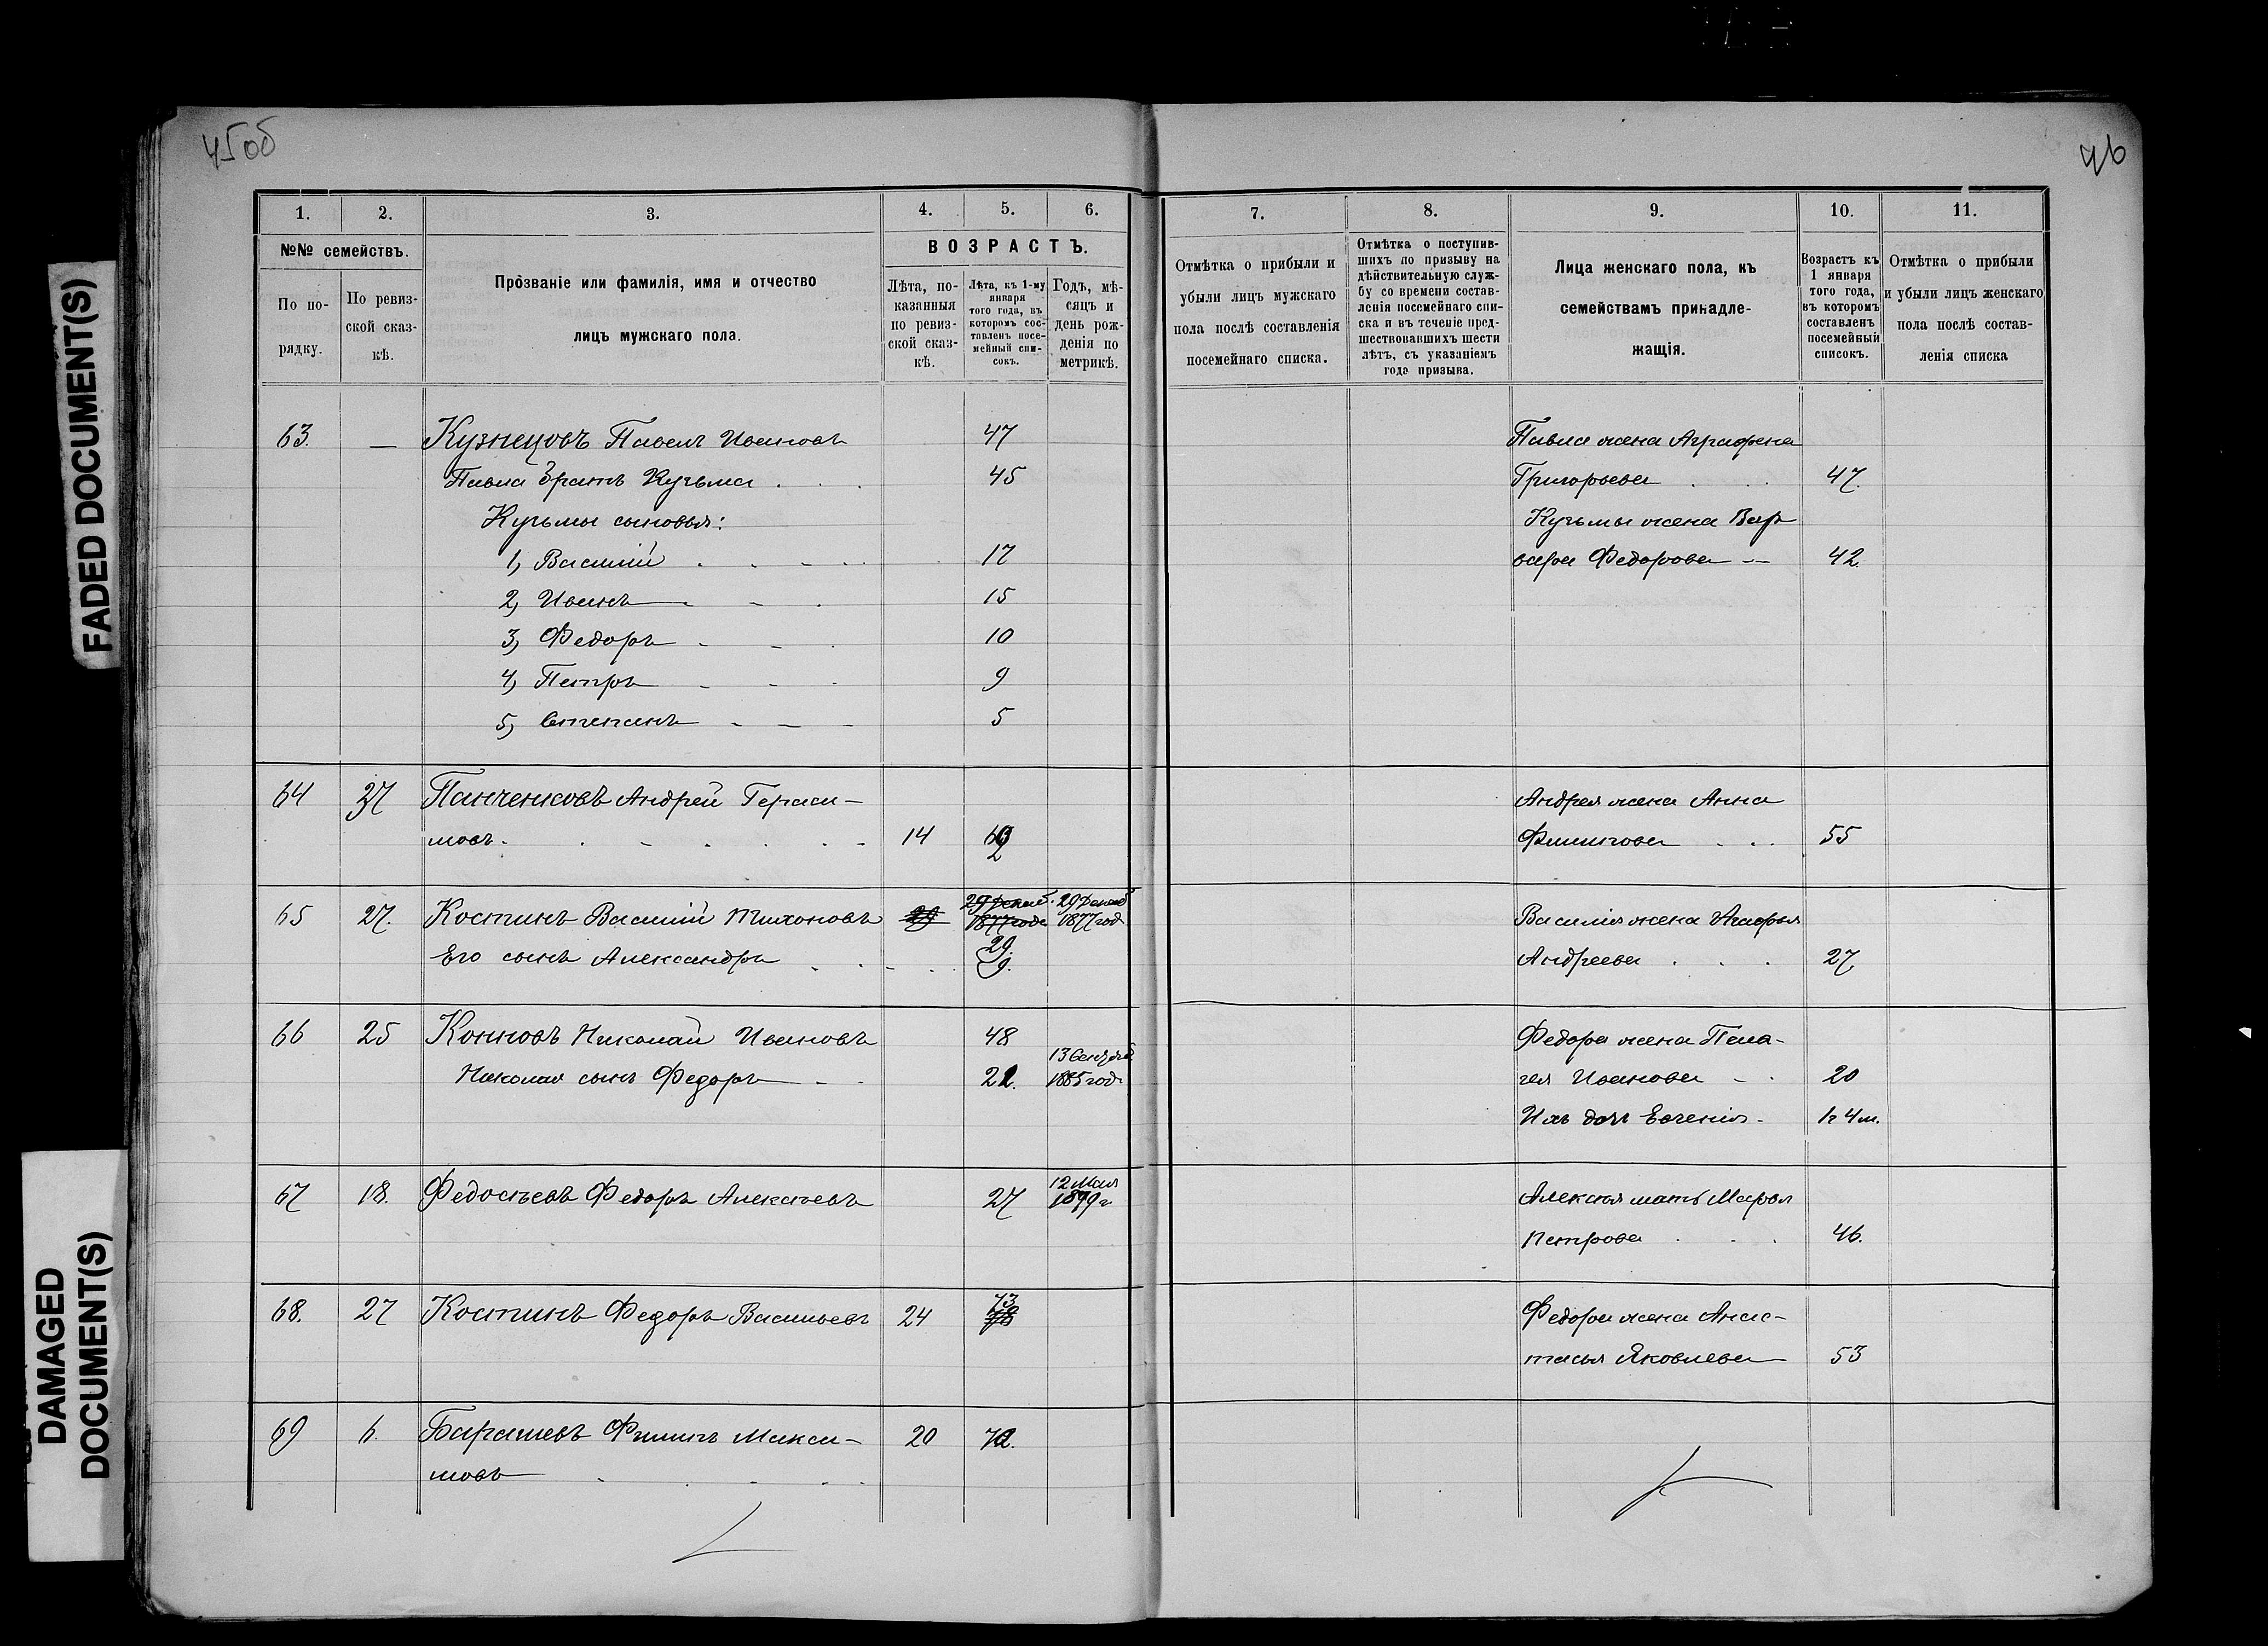 45 об
46
FADED DOCUMENT(S)
DAMAGED
DOCUMENT(S)
1. 2. 3. 4. 5. 6.
№№ семействъ.
По по-
рядку.
По ревиз-
ской сказ-
кѣ.
Прозваніе или фамилія, имя и отчество
лицъ мужскаго пола.
ВОЗРАСТЪ.
Лѣта, по-
казанныя
по ревиз-
ской сказ-
кѣ.
Лѣта, къ 1-му
января
того года, въ
которомъ сос-
тавленъ посе-
мейный спи-
сокъ.
Годъ, мѣ-
сяцъ и
день рож-
денія по
метрикѣ.
63. — Кузнецовъ Павелъ Ивановъ 47
Павла братъ Кузьма 45
Кузьмы сыновья:
1, Василій 17
2, Иванъ 15
3, Федоръ 10
4, Петръ 9
5, Степанъ 5
64 27 Панченковъ Андрей Гераси-
мовъ 14
65 27. Костинъ Василій Тихоновъ 29 29 Декаб. 1877 года 29 Декаб. 1877 год
29.
Его сынъ Александръ 9.
66 25 Конновъ Николай Ивановъ 48
Николая сынъ Федоръ 21. 13 Сентяб. 1885 год
67 18. Федосѣевъ Федоръ Алексѣевъ 27 12 Мая 1879 г
68. 27 Костинъ Федоръ Васильевъ 24 73
69 6. Барашевъ Филипъ Макси- 20 72.
мовъ
7. 8. 9. 10. 11.
Отмѣтка о прибыли и
убыли лицъ мужскаго
пола послѣ составленія
посемейнаго списка.
Отмѣтка о поступив-
шихъ по призыву на
дѣйствительную служ-
бу со времени состав-
ленія посемейнаго спи-
ска и въ теченіе пред-
шествовавшихъ шести
лѣтъ, съ указаніемъ
года призыва.
Лица женскаго пола, къ
семействамъ принадле-
жащія.
Возрастъ къ
1 января
того года,
въ которомъ
составленъ
посемейный
списокъ.
Отмѣтка о прибыли
и убыли лицъ женскаго
пола послѣ состав-
ленія списка
Павла жена Аграфена
Григорьева 47.
Кузьмы жена Вар
вара Федорова 42.
Андрея жена Анна
Филипова 55
Василія жена Агафья
Андреева 27
Федора жена Пела-
гея Иванова 20
Ихъ дочь Евгенія 1 г 4 м.
Алексѣя мать Марья
Петрова 46.
Федора жена Анас-
тасья Яковлева 53